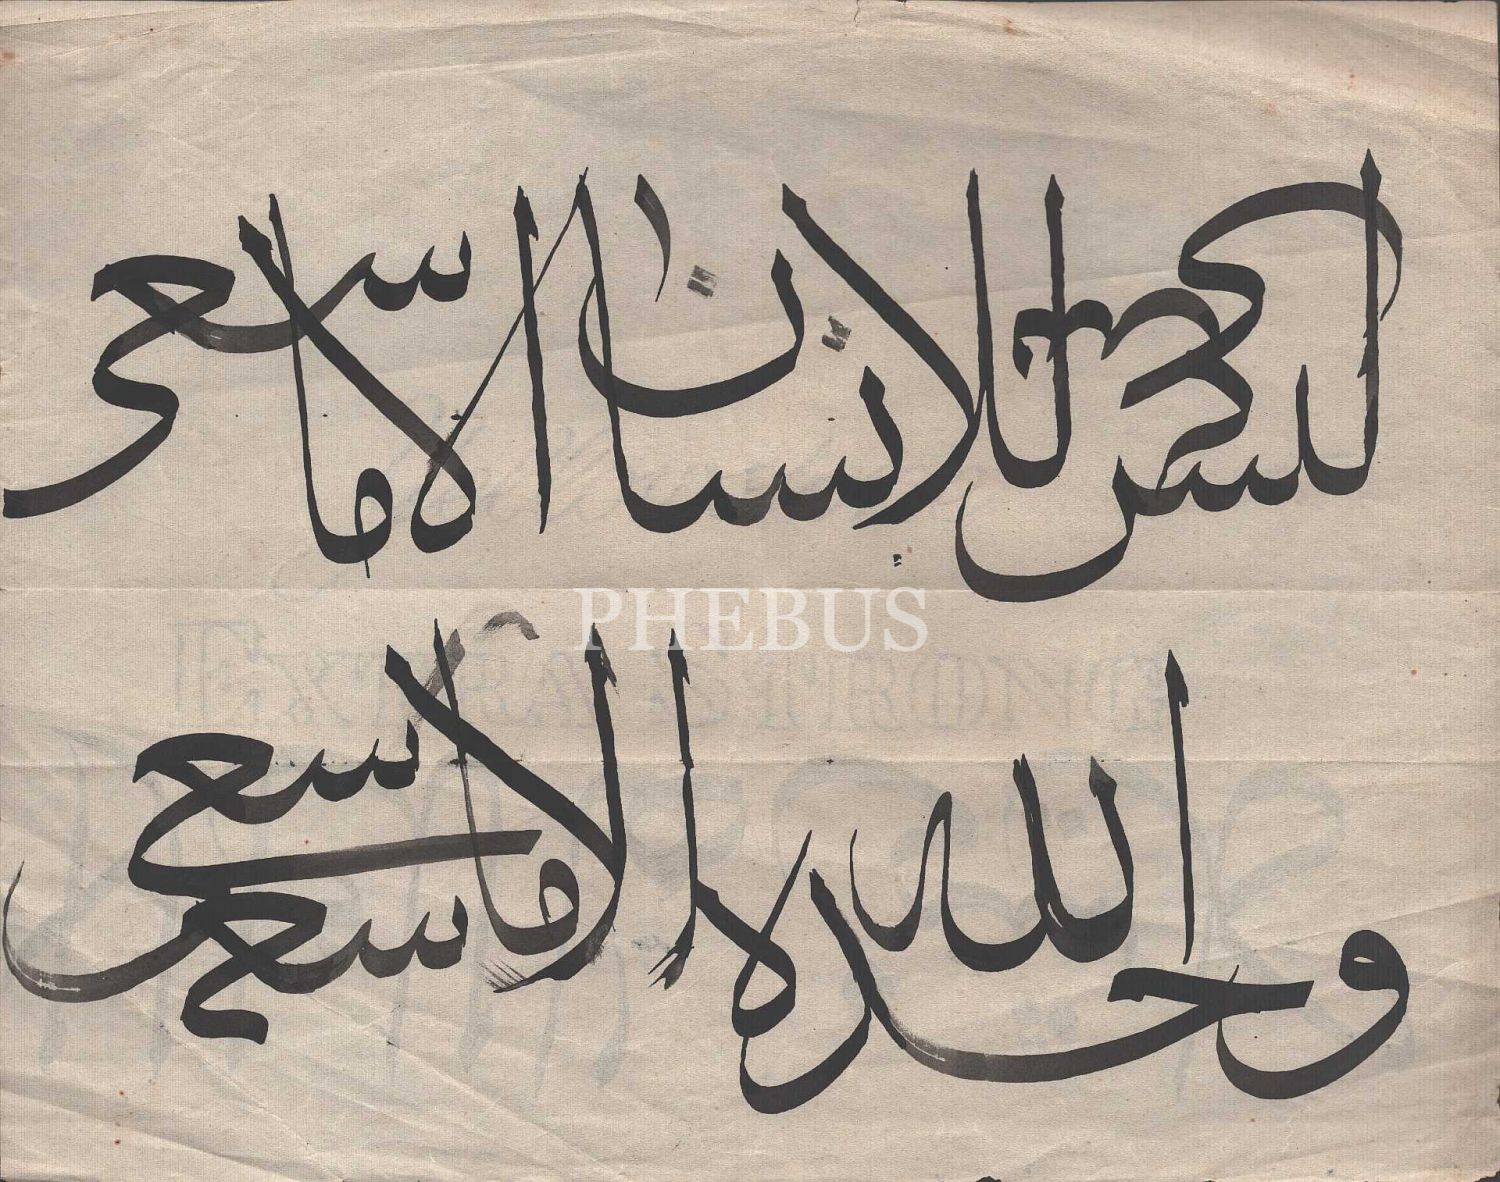 ليس للانسان الا ما سعى
PHEBUS
والله وحده الا ما سعى
سعى